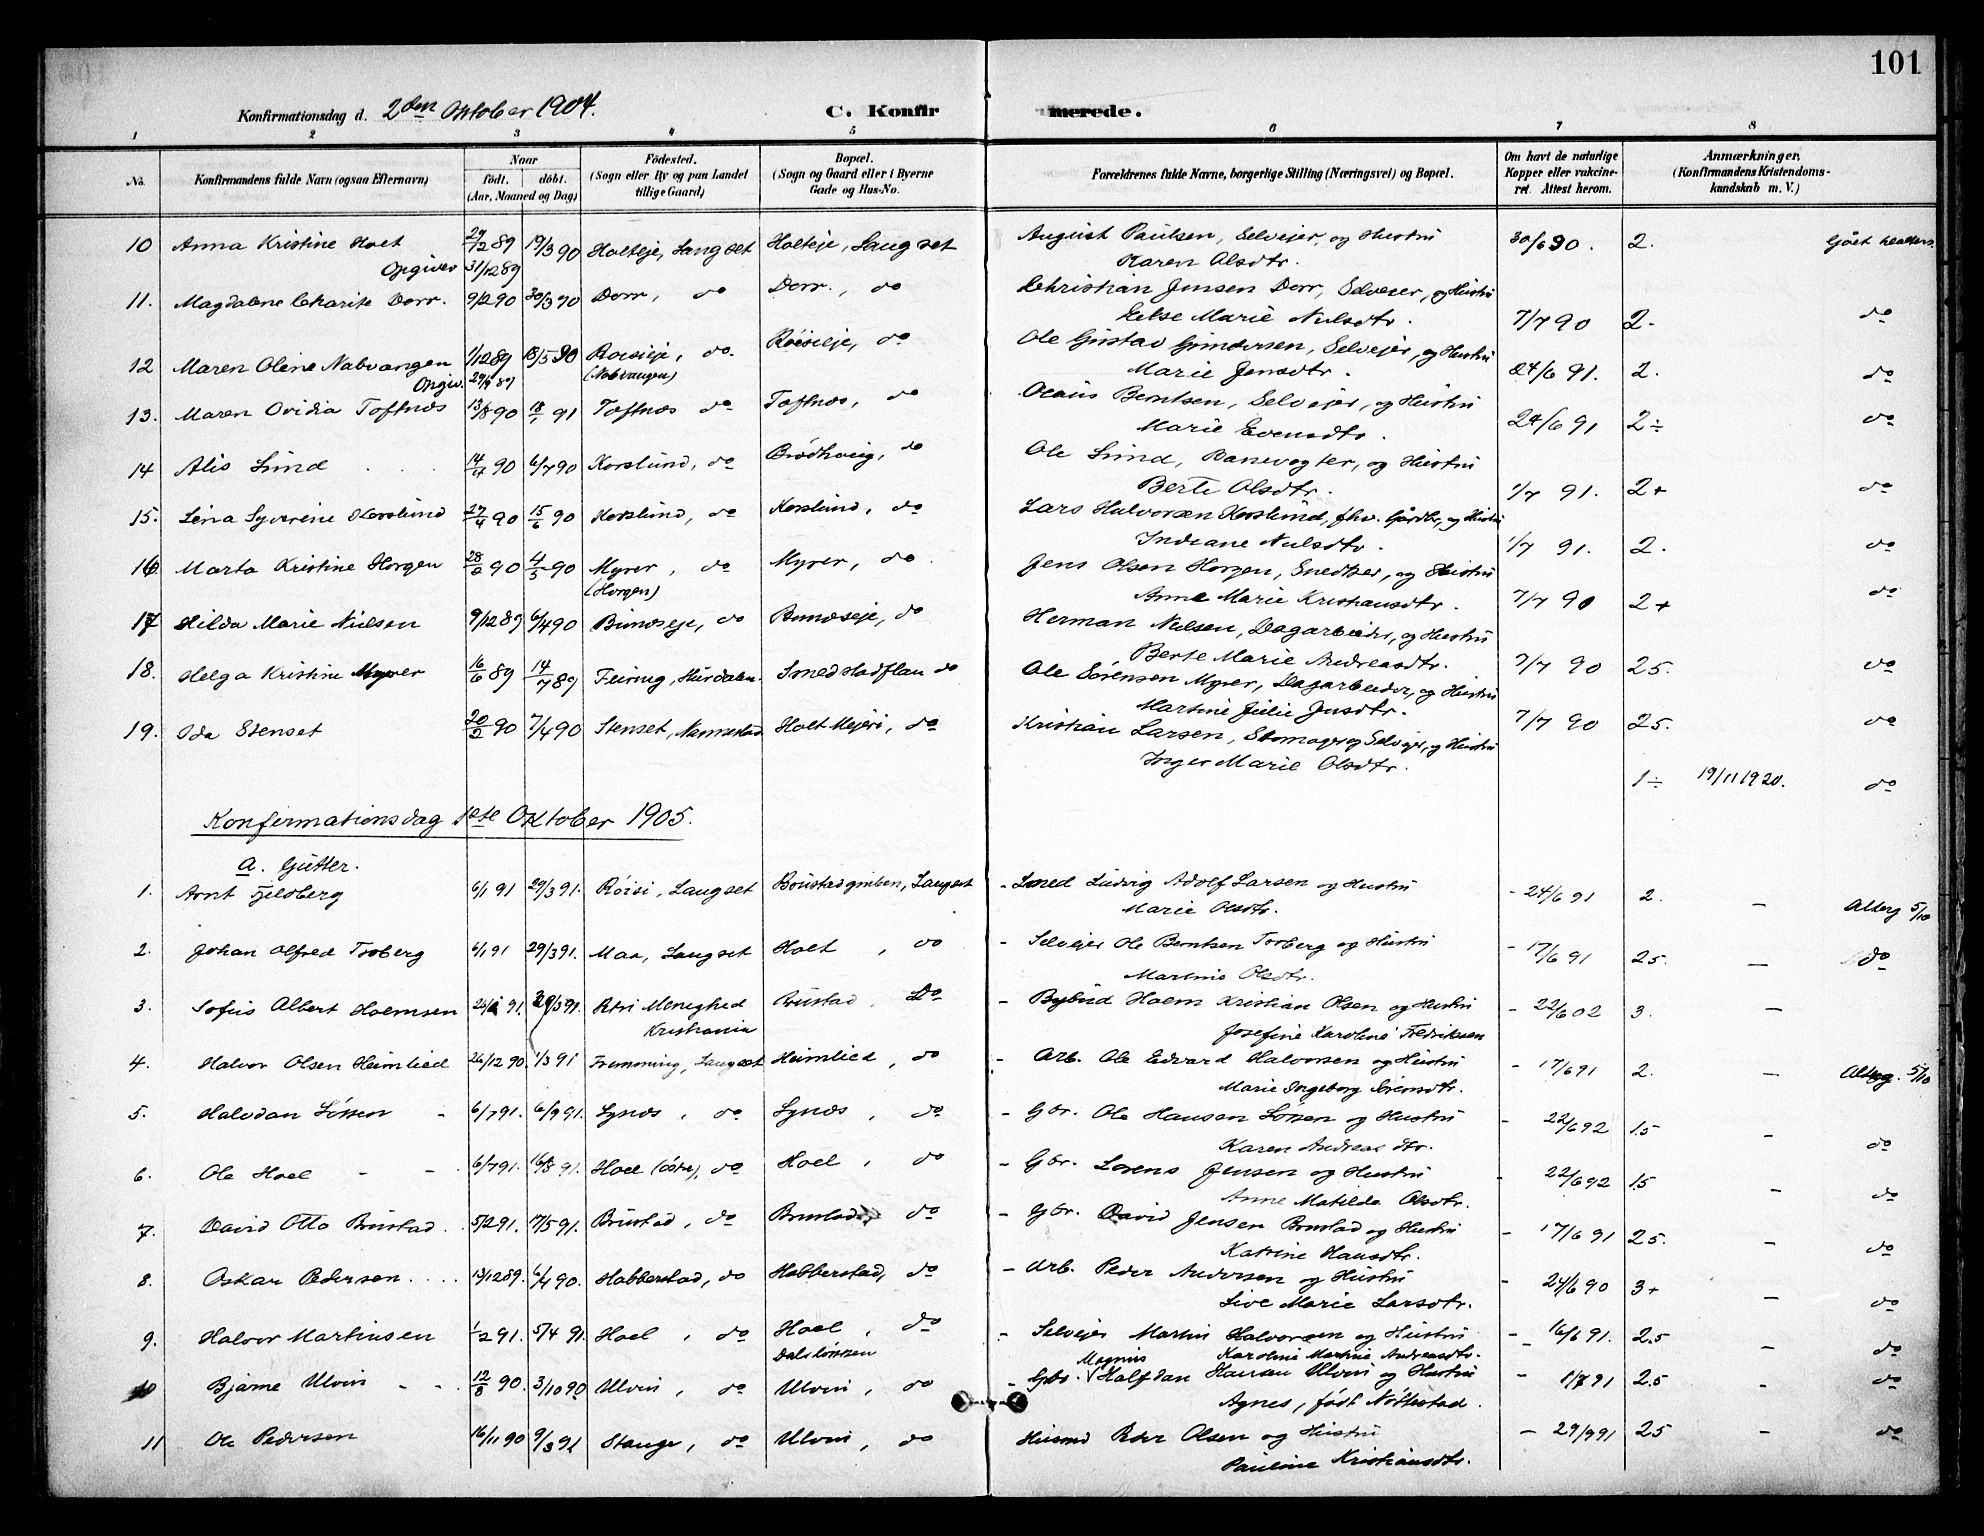 101
Konfirmationsdag d. 2den Oktober 1904.
C. Konfirmerede.
1 2 3 4 5 6 7 8
No. Konfirmandens fulde Navn (ogsaa Efternavn)
Naar født. døbt. (Aar, Maaned og Dag)
Fødested. (Sogn eller By og paa Landet tillige Gaard)
Bopæl. (Sogn og Gaard eller i Byerne Gade og Hus-No.
Forældrenes fulde Navne, borgerlige Stilling (Næringsvei) og Bopæl.
Om havt de naturlige Kopper eller vaccineret. Attest herom.
Anmærkninger. (Konfirmandens Kristendomskundskab m. V.)
10 Anna Kristine Holt 29/12 89 19/3 90 Holteje, Langset Holteje, Langset August Paulsen, Selvejer, og Hustru 30/6 90. 2.
Opgiver 31/12 89 Karen Olsdtr.
11. Magdalene Charite Dorr. 9/2 90 30/3 90 Dorr, do Dorr., do Christian Jensen Dorr, Selveier, og Hustru
Else Marie Nilsdtr. 7/7 90 2. do
12 Maren Oline Nabvangen 1/12 89 18/5 90 Roisieje, do. Röisieje, do Ole Gustav Gundersen, Selvejer, og Hustru
Opgiv. (Nabvangen) Marie Jensdtr. 24/6 91. 2. do
13. Maren Ovidia Toftnæs 13/8 90 18/1 91 Toftnæs do Toftnæs, do Olaus Berntsen, Selvejer, og Hustru
Marie Evensdtr. 24/6 91 2÷ do
14 Alis Lund 14/4 90 6/7 90 Korslund, do Brödhveig, do Ole Lund, Banevogter, og Hustru
Berte Olsdtr. 1/7 91. 2+ do
15. Lina Syverine Korslund 27/4 90 15/6 90 Korslund, do Korslund, do Lars Halvorsen Korslund, fhv. Gårdbr, og Hustru
Indiane Nilsdtr. 1/7 91. 2. do
16 Marta Kristine Horgen 90 4/5 90 Myrer, do Myrer, do Jens Olsen Horgen, Snedker, og Hustru
(Horgen) Anne Marie Kristiansdtr. 7/7 90 2+ do
17 Hilda Marie Nielsen 9/12 89 6/4 90 Bundseje, do Bundseje, do Herman Nielsen, Dagarbeider, og Hustru
Berte Marie Andreasdtr. 7/7 90 2 5. do
18. Helga Kristine Myrer 16/6 89 14/7 89 Feiring, Hurdalen. Smedstadflan do Ole Sörensen Myrer, Dagarbeider, og Hustru
Martine Julie Jensdtr. 7/7 90 2 5. do
19. Ida Stenset 20/2 90 7/4 90 Stenset, Nannestad Holt Mejeri, do Kristian Larsen, Skomager og Selvejer, og Hustru
Inger Marie Olsdtr. 1÷ 19/11 1920. do
Konfirmationsdag 1ste Oktober 1905.
a. Gutter.
1. Arnt Fjeldberg 6/1 91 29/3 91. Röisi, Langset Brustadgruben, Langset - Smed Ludvig Adolf Larsen og Hustru - 24/6 91 2. —
Marie Olsdtr.
2. Johan Alfred Torberg 6/1 91 29/3 91. Maa, Langset Holt, do - Selvejer Ole Berntsen Torberg og Hustru - 17/6 91 2 5. — do
Martine Olsdtr.
3. Sofus Albert Holmsen 91. 91. Petri Menighed Brustad, Do - Bybud Holm Kristian Olsen og Hustru - 22/6 02 3. —
Kristiania Josefine Karoline Fredriksen
4. Halvor Olsen Heimlied 26/12 90. 1/3 91 Fremming, Langset Heimlied, do - Arb. Ole Edvard Halvorsen og Hustru - 17/6 91 2. —
Marie Ingeborg Sörensdtr.
5. Halvdan Lössen - 6/7 91. 6/9 91. Lynæs, do Lynæs, do - Gbr. Ole Hansen Lössen og Hustru - 22/6 92 1.5 - do
Karen Andreas dtr.
6. Ole Hoel - - 6/7 91. 16/8 91. Hoel (östre), do Hoel, do - Gbr. Lorens Jensen og Hustru - 22/6 92 1.5 - do
Anne Matilde Olsdtr.
7. David Otto Brustad. 5/2 91. 7/5 91. Brustad, do Brustad, do - Gbr. David Jensen Brustad og Hustru - 17/6 91 2 5. - do
Katrine Hansdtr.
8. Oskar Pedersen 13/12 89. 6/4 90. Habberstad, do Habberstad, do - Arb. Peder Andersen og Hustru - 24/6 90 3+ - do
Live Marie Larsdtr.
9. Halvor Martinsen 1/2 91. 5/4 91. Hoel, do Hoel, do - Selvejer Martin Halvorsen og Hustru - 16/6 91. 2.5 - do
Dalslössen Karoline Martine Andreasdtr.
10 Bjarne Ulvin - - 12/8 90. 3/10 90 Ulvin, do Ulvin, do - Gbr. Magnus Halfdan Hansen Ulvin og Hustru - 1/7 91 2.5 - do
Agnes, født Nöttestad.
11 Ole Pedersen 16/11 90 9/3 91 Stange, do Ulvin, do Husmd Peder Olsen og Hustru - 29/9 91 2 5 - do
Pauline Kristiansdtr.